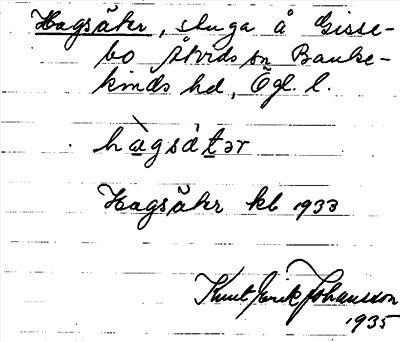 Hagsätr, stuga å Gisse-
bo Åtvids sn Banke-
kinds hd, Ögl. l.
hàgsǻtər
Hagsätr kb 1933
Knut Erik Johansson
1935